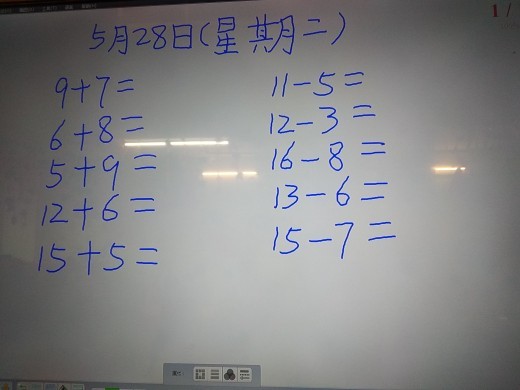 5月28日(星期二)
9+7= 11-5=
6+8= 12-3=
5+9= 16-8=
12+6= 13-6=
15+5= 15-7=